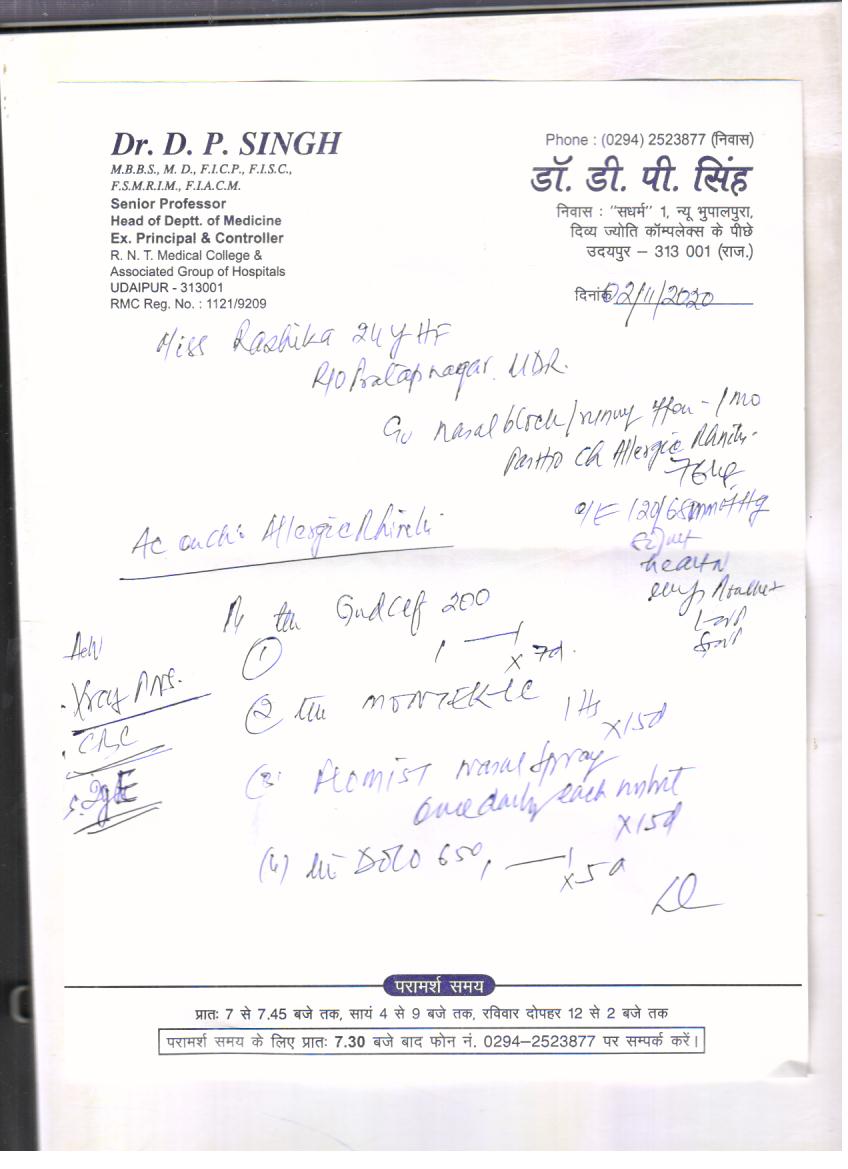 Dr. D. P. SINGH
M.B.B.S., M. D., F.I.C.P., F.I.S.C.,
F.S.M.R.I.M., F.I.A.C.M.
Senior Professor
Head of Deptt. of Medicine
Ex. Principal & Controller
R. N. T. Medical College &
Associated Group of Hospitals
UDAIPUR - 313001
RMC Reg. No. : 1121/9209
Phone : (0294) 2523877 (निवास)
डॉ. डी. पी. सिंह
निवास : "सधर्म" 1, न्यू भुपालपुरा,
दिव्य ज्योति कॉम्पलेक्स के पीछे
उदयपुर – 313 001 (राज.)
दिनांक 02/11/2020
Miss Rashika 24y HF
R/o Pratapnagar. UDR.
nasal block/runny - 1 mo
Allergic
O/E 120/68mmHg
heart N
Allergic Rhinitis
Adv
. Xray PNS.
. CBC
S. IgE
Rx
200
① 1 — 1 x 7d.
② MONTEK-LC 1 Hs
x 15d
(3) Flomist nasal spray
once daily each
x 15d
(4) DOLO 650, 1 — 1
x 5d
परामर्श समय
प्रातः 7 से 7.45 बजे तक, सायं 4 से 9 बजे तक, रविवार दोपहर 12 से 2 बजे तक
परामर्श समय के लिए प्रातः 7.30 बजे बाद फोन नं. 0294–2523877 पर सम्पर्क करें।